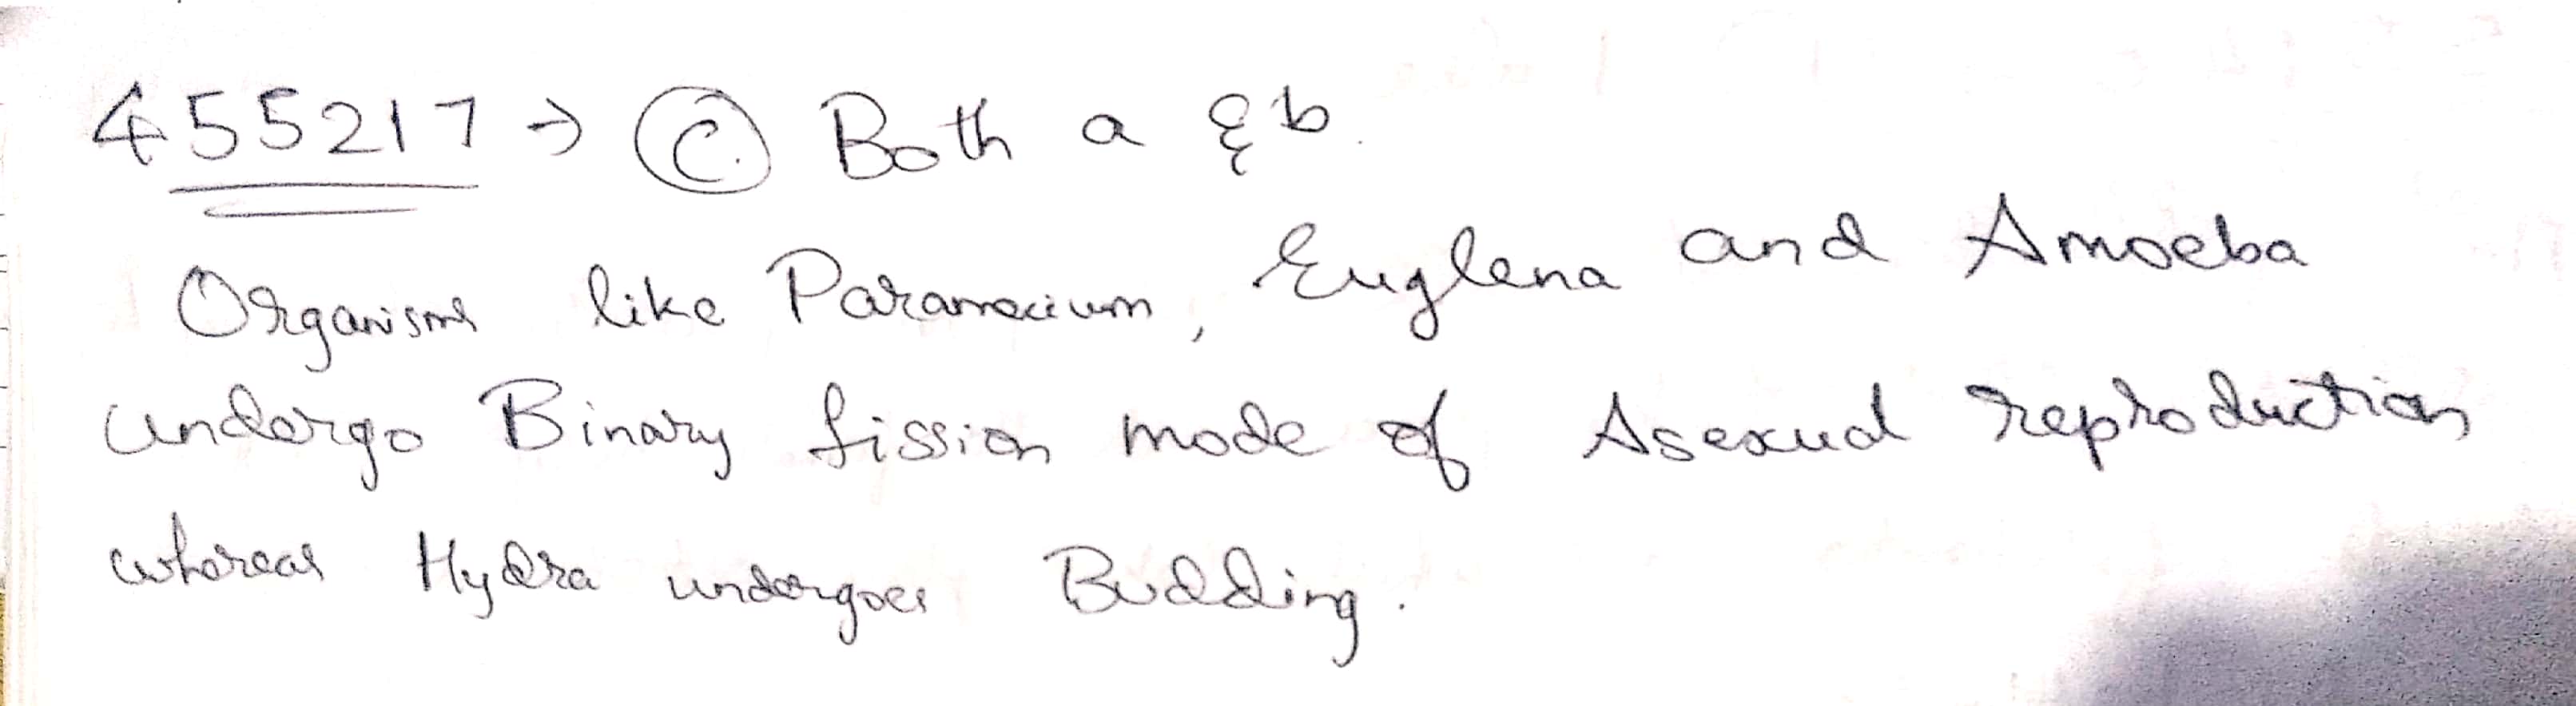 455217 → (C.) Both a & b.
Organisms like Paramecium, Euglena and Amoeba
undergo Binary fission mode of Asexual reproduction
whereas Hydra undergoes Budding.